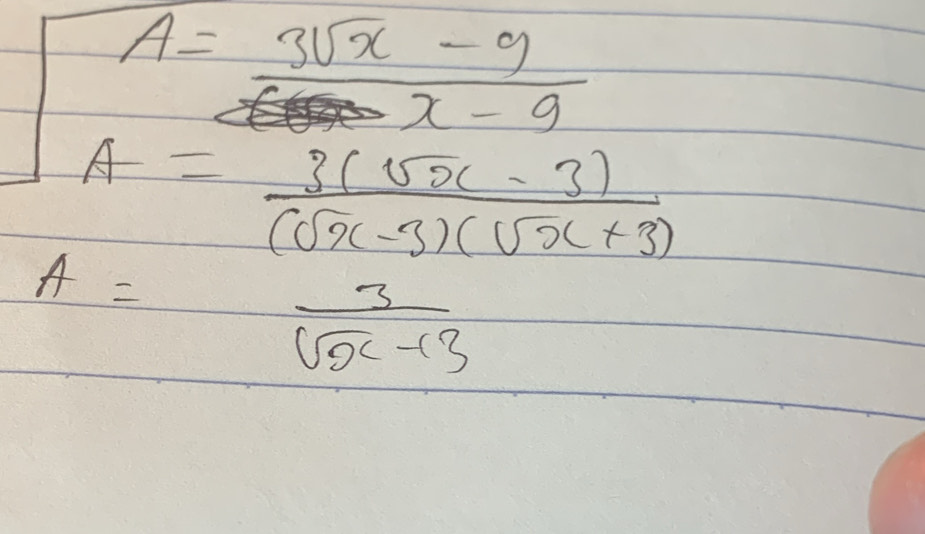 A = (3√x - 9)/(x - 9)
A = (3(√x - 3))/((√x - 3)(√x + 3))
A = 3/(√x + 3)